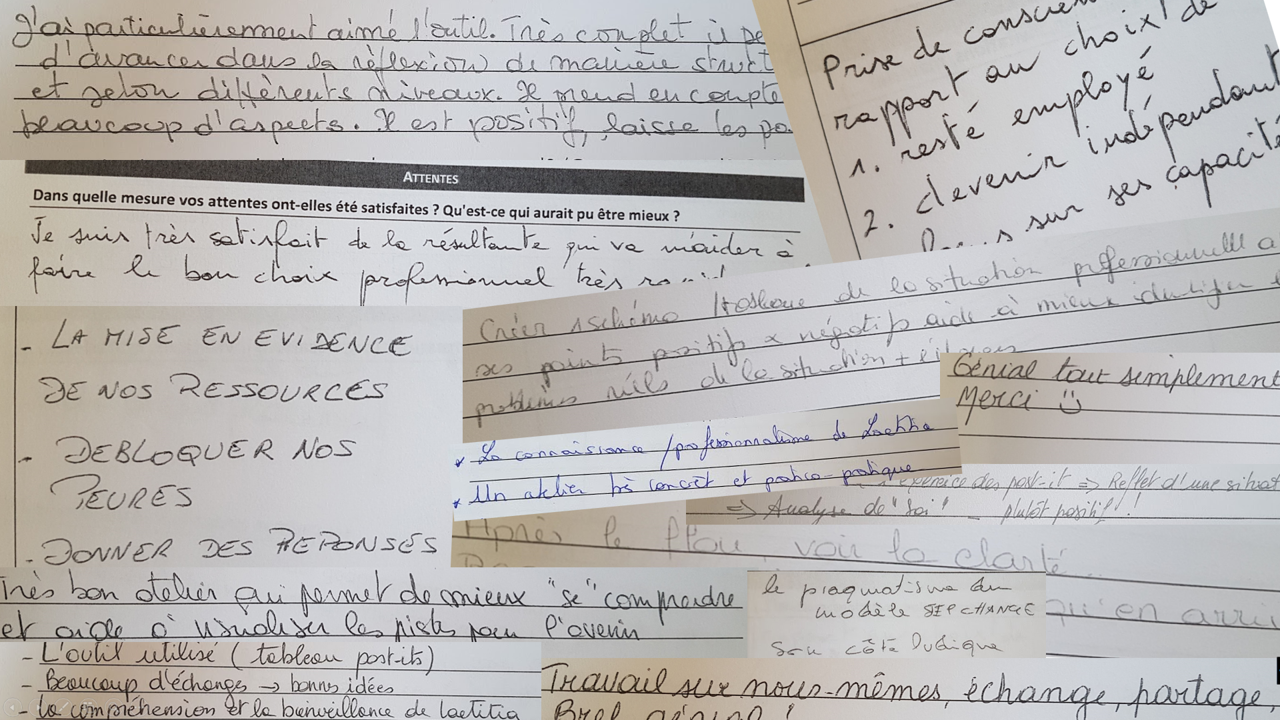 J'ai particulièrement aimé l'outil. Très complet il pe
d'avancer dans la réflexion de manière struct
et selon différents niveaux. Il prend en compte
beaucoup d'aspects. Il est positif, laisse les po
Prise de conscien
rapport au choix de
1. resté employé
2. devenir indépendant
sur ses capacité
ATTENTES
Dans quelle mesure vos attentes ont-elles été satisfaites ? Qu'est-ce qui aurait pu être mieux ?
Je suis très satisfait de la résultante qui va m'aider à
faire le bon choix professionnel très
- LA MISE EN EVIDENCE
DE NOS RESSOURCES
- DEBLOQUER NOS
PEURES
- DONNER DES REPONSES
Créer 1 schéma de la situation professionnelle a
ses points positifs & négatifs aide à mieux identifier
problèmes réels de la situation +
Génial tout simplement
Merci ☺
* La connaissance / professionnalisme de Laetitia
* Un atelier très concret et pratico-pratique
exercice des post-it => Reflet d'une situat
=> Analyse de "soi" - plutôt positif !!
Après le flou, voir la clarté...
qu'en arri
Très bon atelier qui permet de mieux "se" comprendre
et aide à visualiser les pistes pour l'avenir
le pragmatisme du
modèle STEPCHANGE
son côté ludique
- L'outil utilisé (tableau post-its)
- Beaucoup d'échanges → bonnes idées
- la compréhension et la bienveillance de laetitia
Travail sur nous-mêmes, échange, partage,
Bref génial !